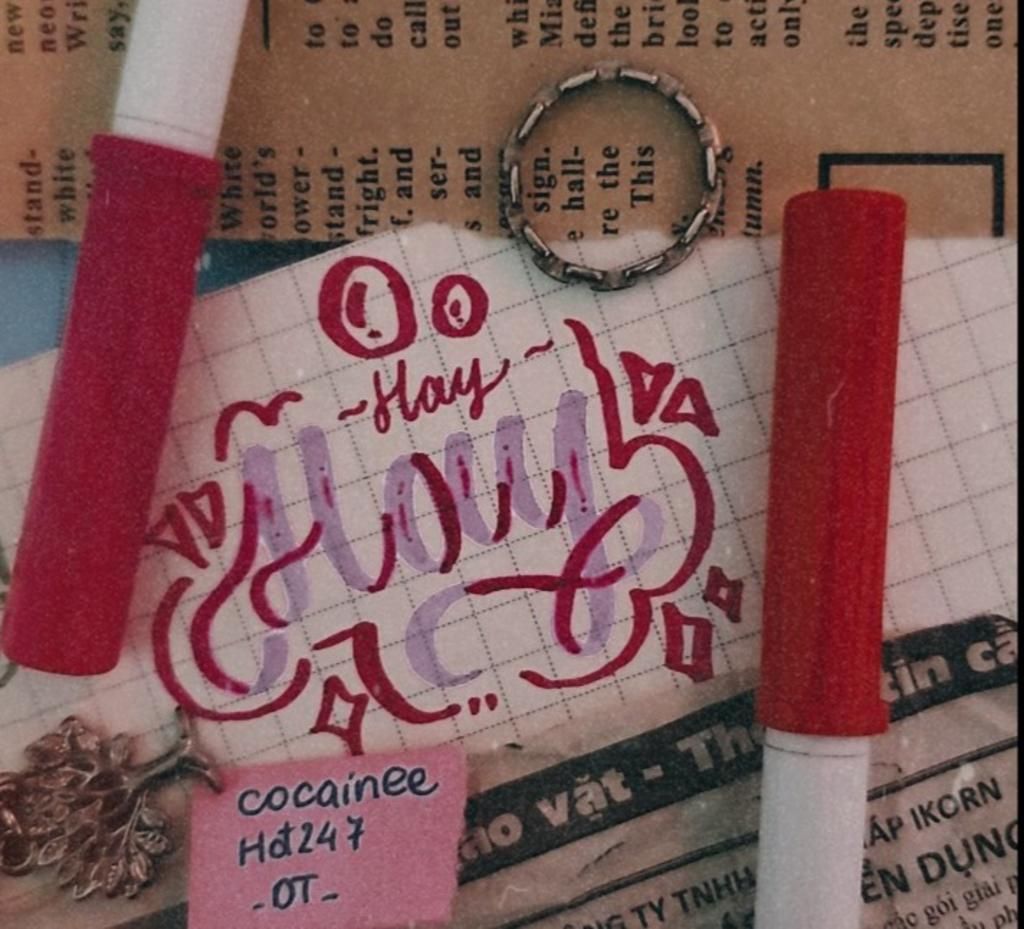 new
neov
Wri
say,
to c
to a
do
call
out
whi
Mia
defi
the
bric
look
to
acti
only
the
spec
dep
tise
one
stand-
white
White
orld's
ower-
stand-
fright.
f. and
ser-
s and
sign.
e hall-
re the
This
tumn.
Oo
~Hay~
Hay
cocainee
Hót247
-OT-
áo vặt - Thô
tin cầ
ÁP IKORN
NG TY TNHH
ỂN DỤNG
các gói giải p